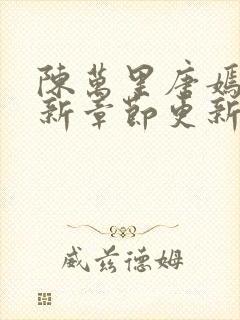 陳萬里唐嫣
新章節更新
威茲德姆